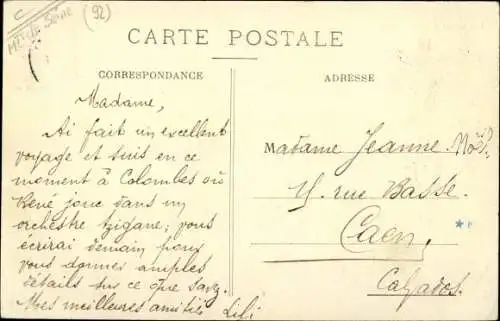 C
Hts de Seine
(92)
CARTE POSTALE
CORRESPONDANCE
ADRESSE
Madame,
Ai fait un excellent
voyage et suis en ce
moment à Colombes où
René joue dans un
orchestre tzigane; vous
écrirai demain pour
vous donner amples
détails sur ce que savez.
Mes meilleures amitiés Lili
Madame Jeanne Noël
rue Basse.
Caen,
Calvados.